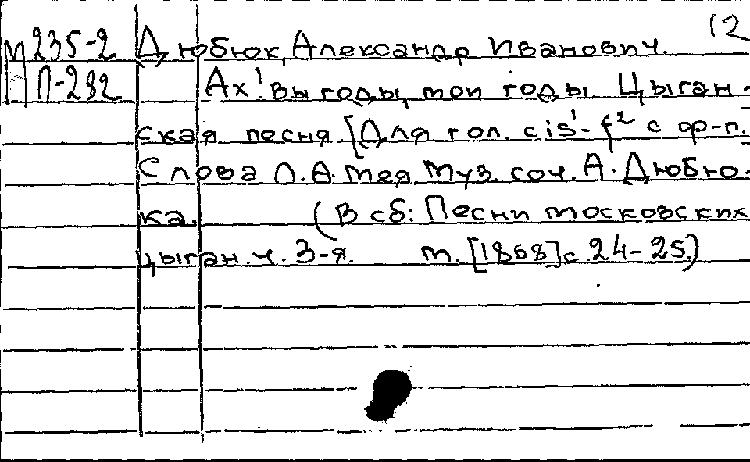 (2
М 235-2 Дюбюк, Александр Иванович.
П-292 Ах! вы годы, мои годы. Цыган-
ская песня. [Для гол. cis¹-f² с ф-п.
Слова Л. А. Мея. Муз. соч. А. Дюбю-
ка. (В сб: Песни московских
цыган. ч. 3-я. М. [1868] с 24-25.)